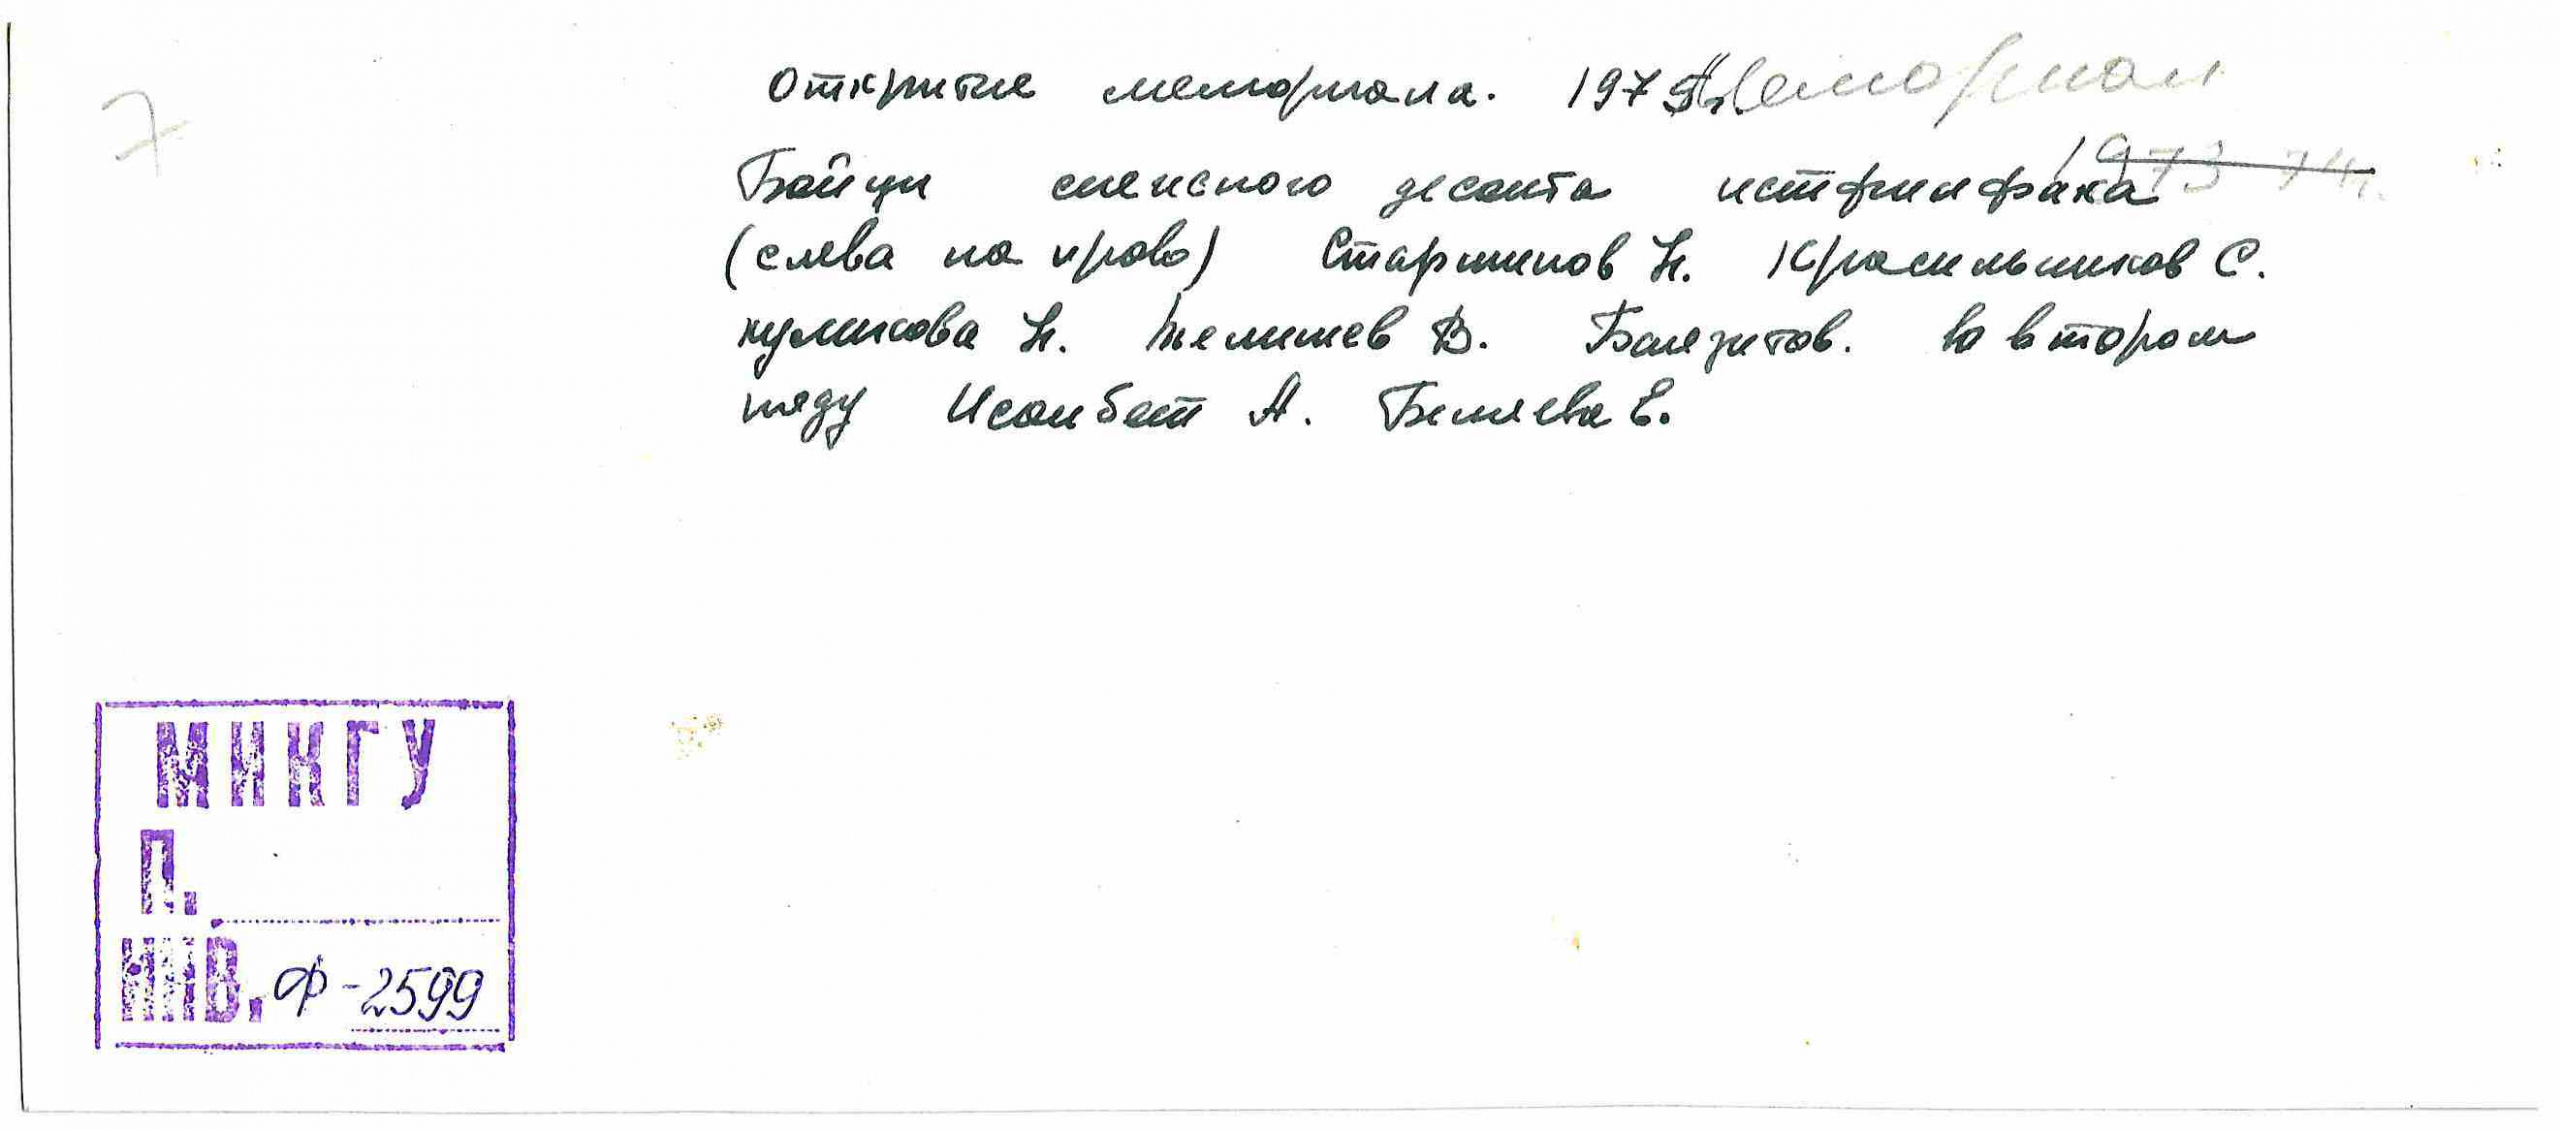 7
Открытие мемориала. 1975г. Мемориал
1973-74гг.
Бойцы снежного десанта истфилфака
(слева на право) Старшинов Н. Красильников С.
куликова Н. Телишев В. Баязитов. во втором
ряду Исанбет А. Беляева Е.
МИКГУ
П.
ИНВ. Ф-2599